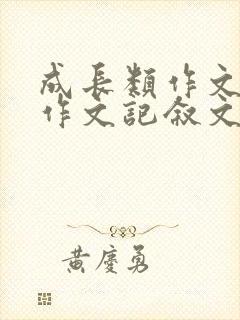 成長類作文
作文記敘文
黃慶勇